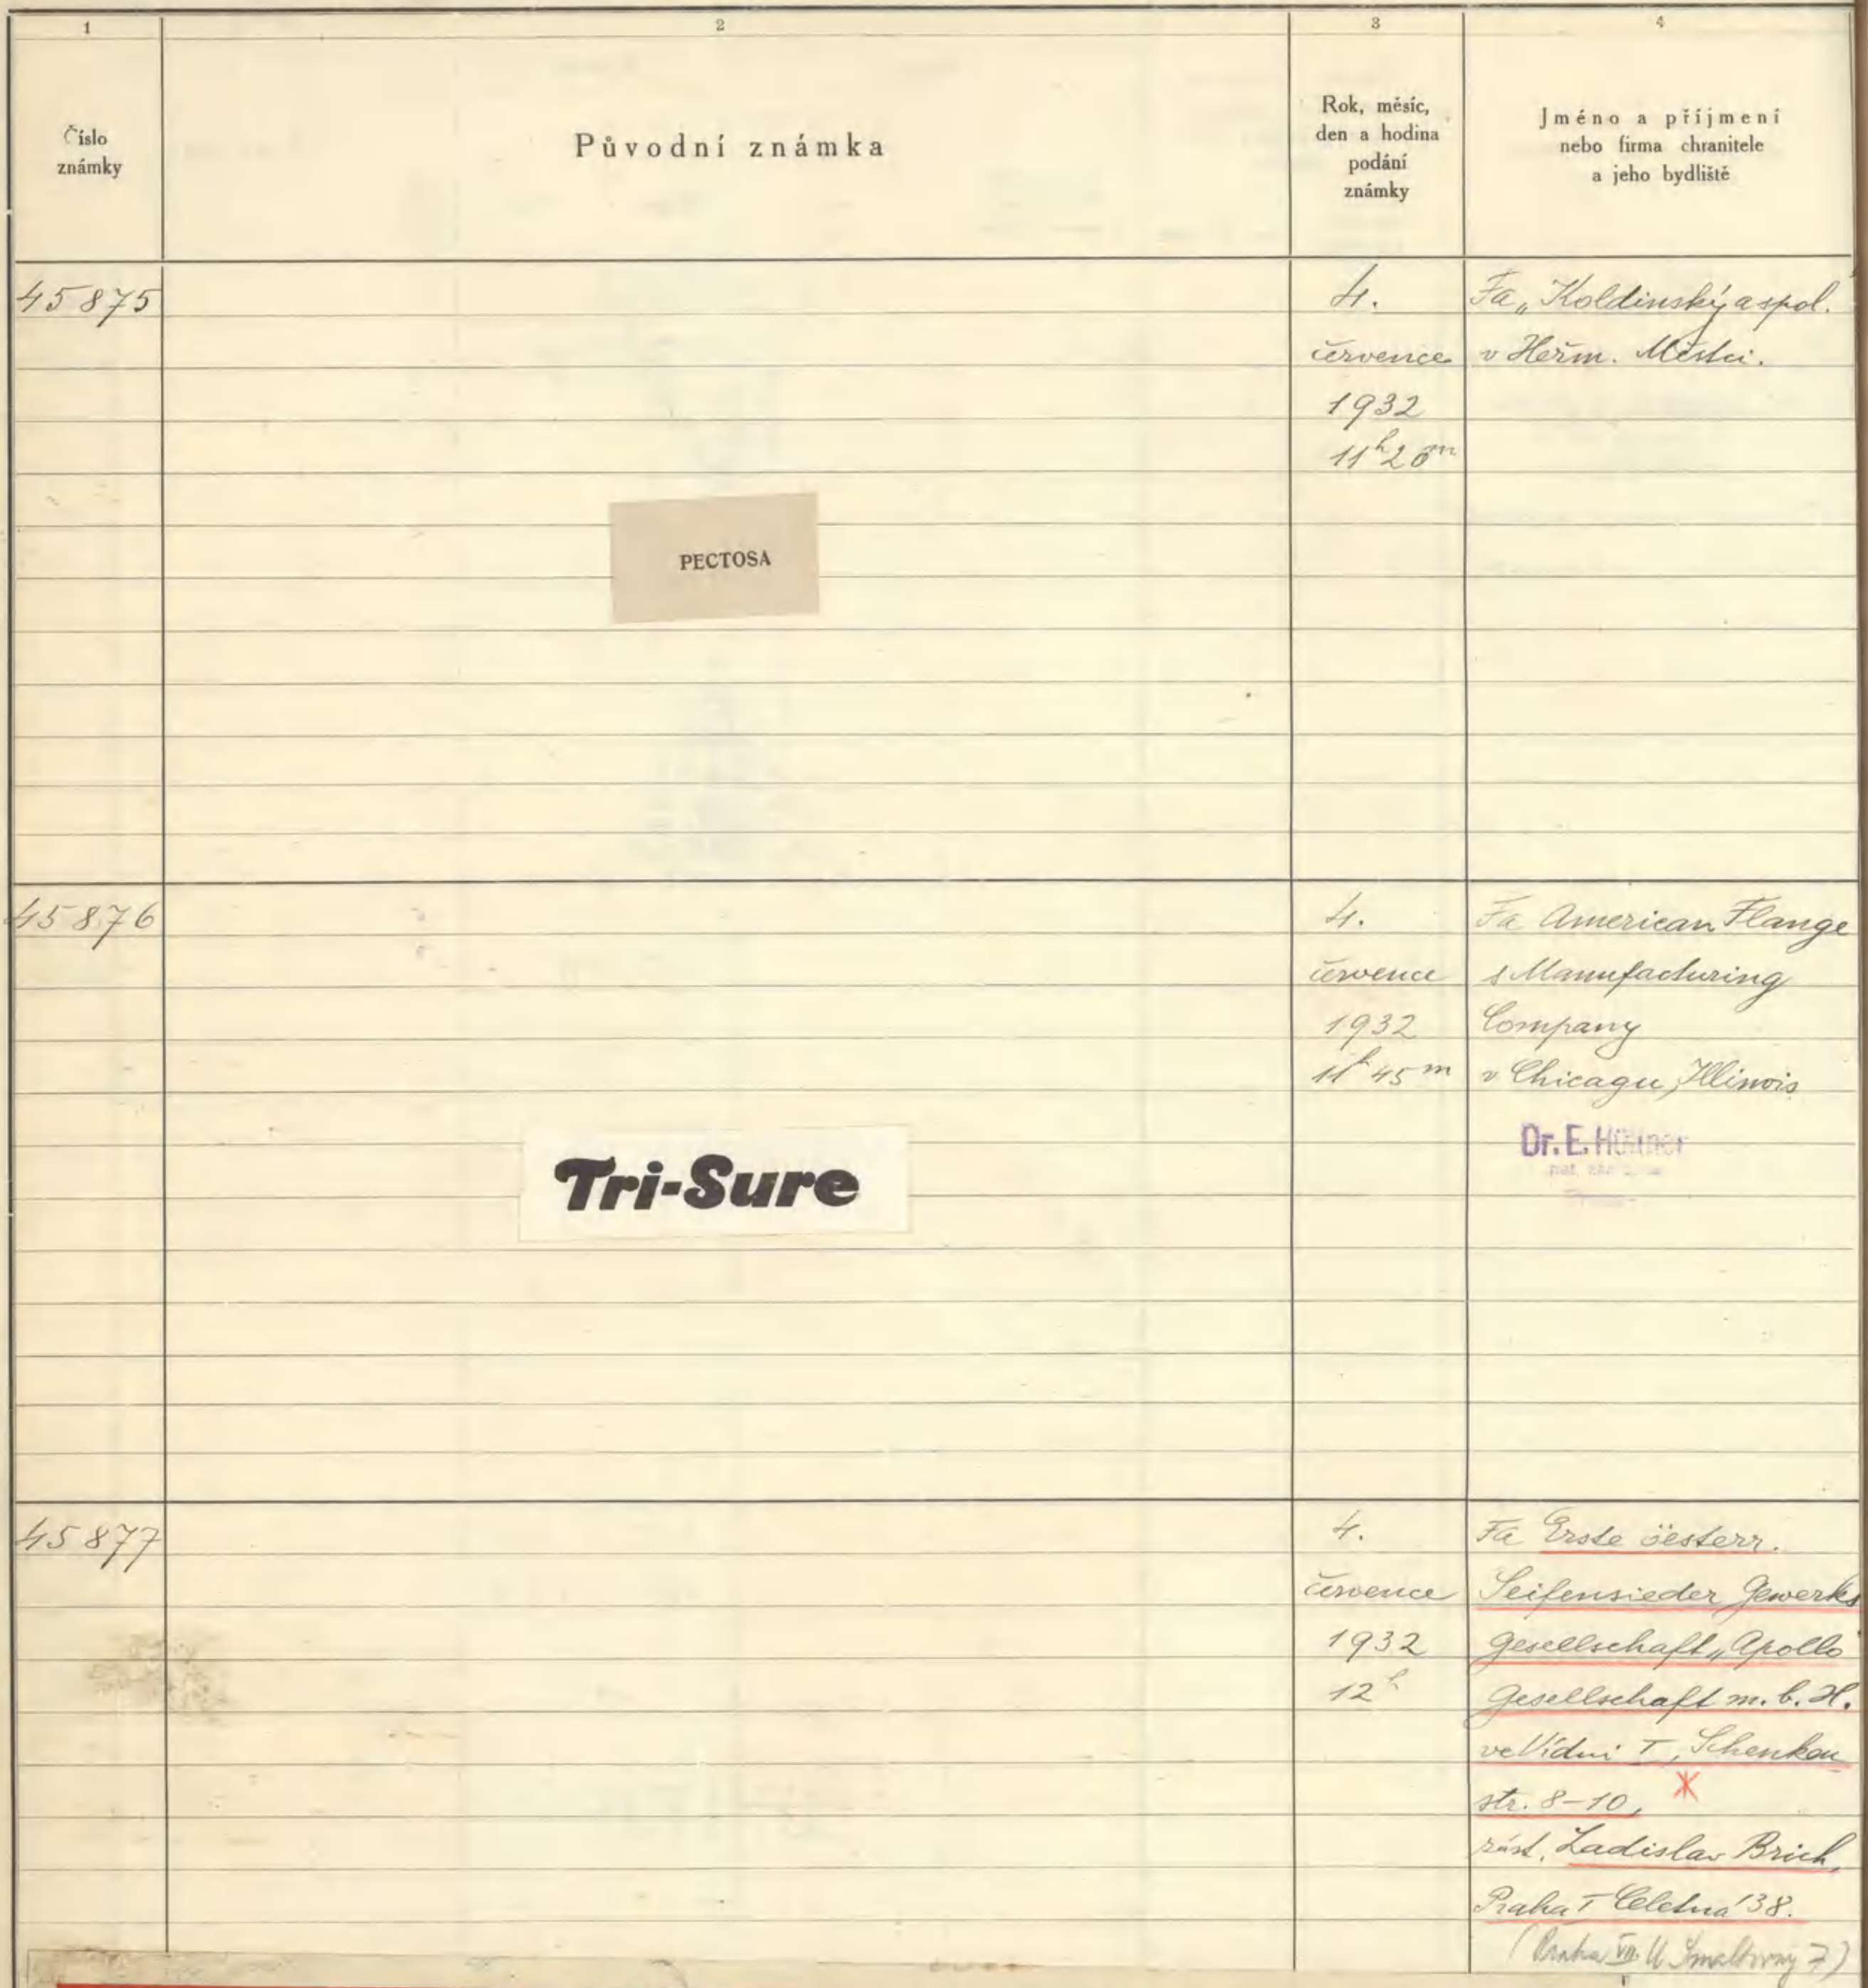 1
2
3
4
Číslo
známky
Původní známka
Rok, měsíc,
den a hodina
podání
známky
Jméno a příjmení
nebo firma chranitele
a jeho bydliště
45875
4.
července
1932
11h 26m
Fa „Koldinský a spol."
v Heřm. Městci.
PECTOSA
45876
4.
července
1932
11h 45m
Fa American Flange
& Manufacturing
Company
v Chicagu, Illinois
Dr. E.
Tri-Sure
45877
4.
července
1932
12h
Fa Erste öesterr.
Seifensieder Gewerks
Gesellschaft „Apollo"
Gesellschaft m. b. H.
ve Vídni I, Schenken
str. 8-10,
zást. Ladislav Brich,
Praha I Celetná 38.
(Praha VII. U Smaltovny 7)